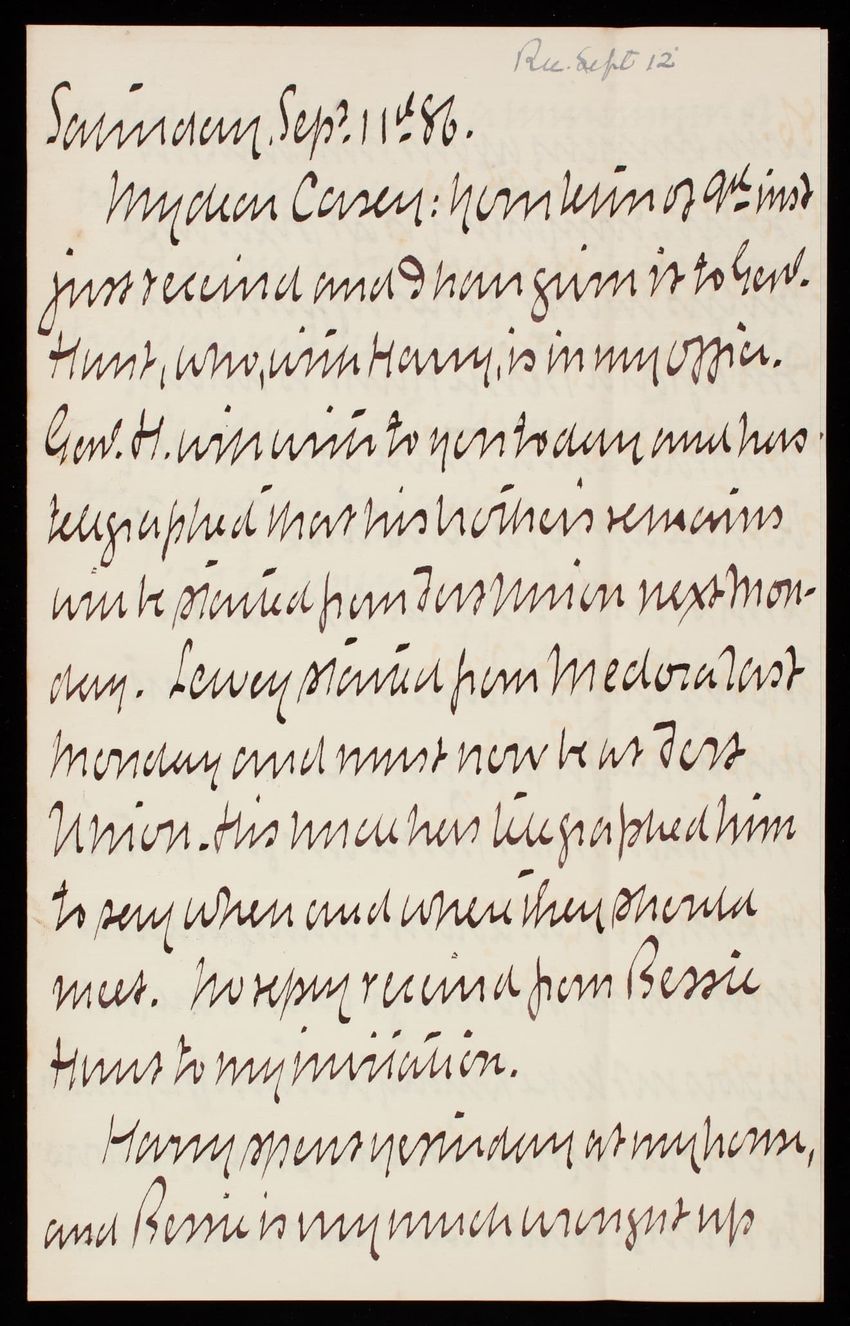 Rec. Sept 12
Saturday, Sep? 11th 86.
My dear Casey: Your letter of 9th inst
just received and I have given it to Genl.
Hunt, who, with Harry, is in my office.
Genl. H. will write to you today and has
telegraphed that his brother's remains
will be started from Fort Union next Mon-
day. Lewey started from Medora last
Monday and must now be at Fort
Union. His uncle has telegraphed him
to say when and where they should
meet. No reply received from Bessie
Hunt to my invitation.
Harry spent yesterday at my house,
and Bessie is very much wrought up